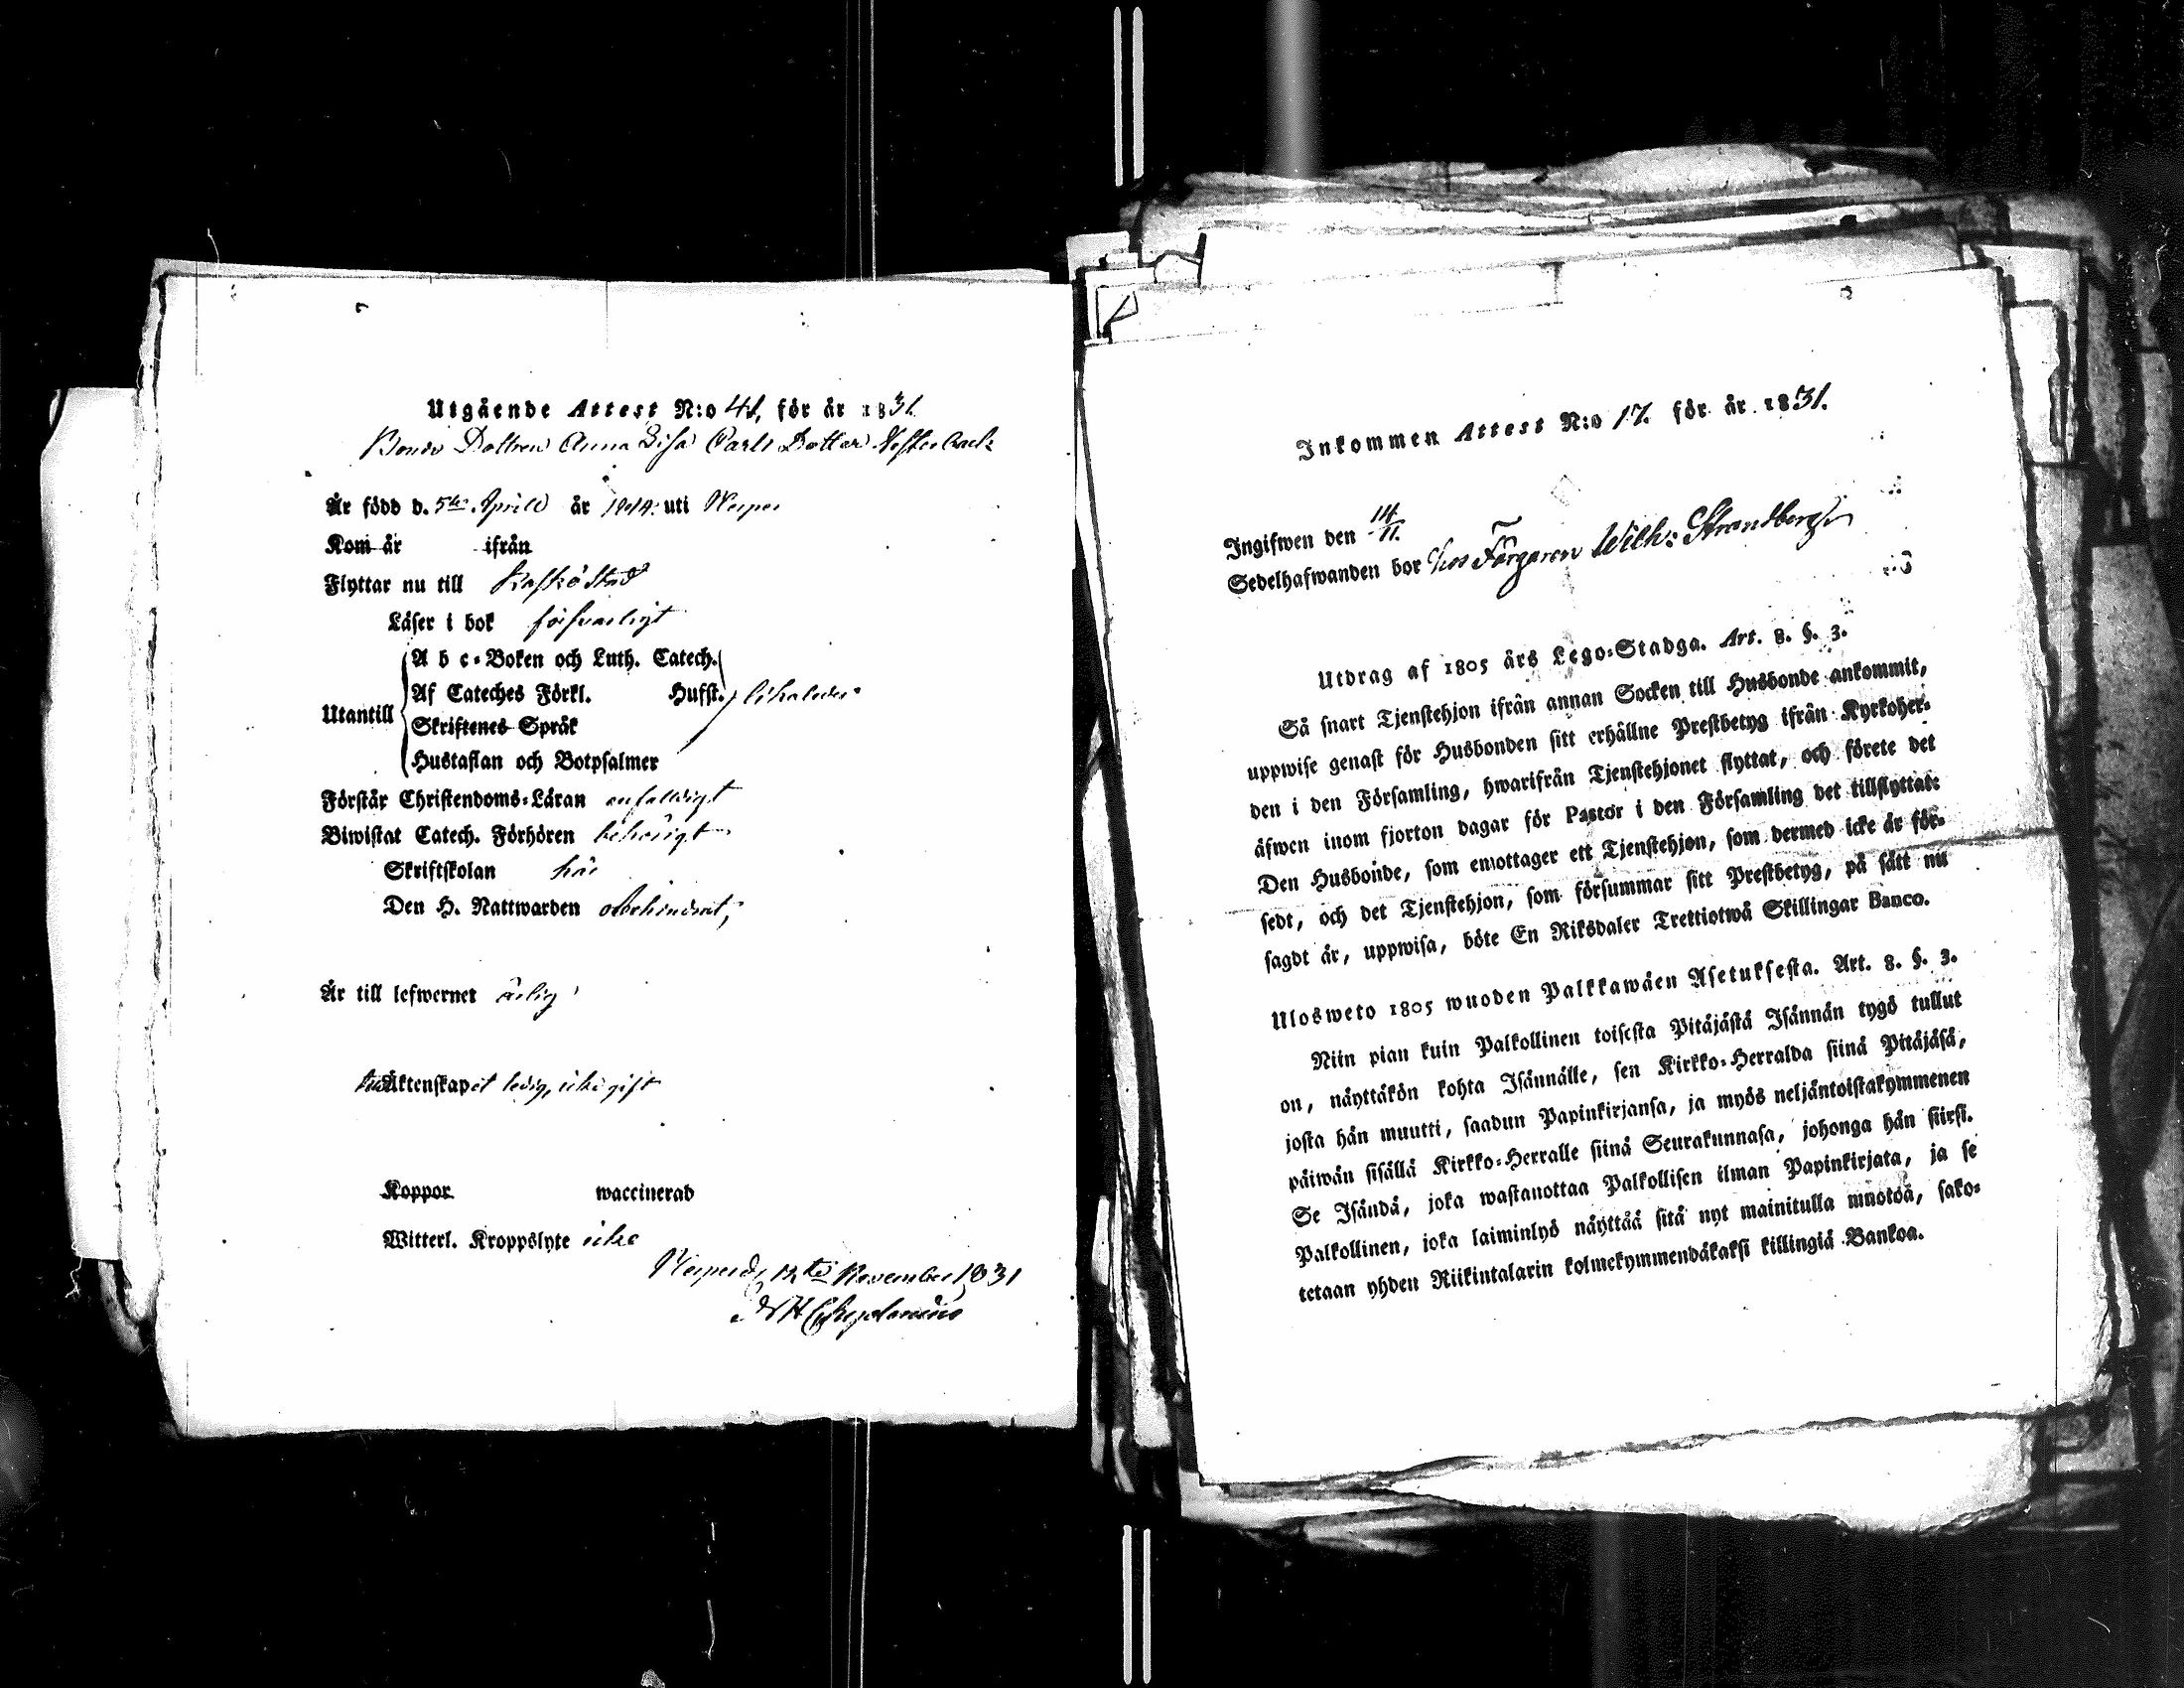 Utgående Attest N:o 41, för år 1831.
Bonde Dottren Anna Lisa Carls Dotter Vesterback
Är född d. 5te Aprill år 1814. uti Nerpes
Kom år ifrån
Flyttar nu till Kaskö Stad
Läser i bok försvarligt
Utantill
A b c-Boken och Luth. Catech.
Af Cateches Förkl. Husst. likaledes
Skriftenes Språk
Hustaflan och Botpsalmer
Förstår Christendoms-Läran enfaldigt
Biwistat Catech. Förhören behörigt
Skriftskolan här
Den H. Nattwarden obehindrat,
Är till lefwernet ärlig
Äktenskapet ledig, icke gift
Koppor waccinerad
Witterl. Kroppslyte icke
Nerpes d. 12te November 1831
Inkommen Attest N:o 17. för år 1831.
Ingifwen den 14/11.
Sedelhafwanden bor hos Färgaren Wilh: Strandberg
Utdrag af 1805 års Lego-Stadga. Art. 8. §. 3.
Så snart Tjenstehjon ifrån annan Socken till Husbonde ankommit,
uppwise genast för Husbonden sitt erhållne Prestbetyg ifrån Kyrkoher-
den i den Församling, hwarifrån Tjenstehjonet flyttat, och förete det
äfwen inom fjorton dagar för Pastor i den Församling det tillflyttat:
Den Husbonde, som emottager ett Tjenstehjon, som dermed icke är för-
sedt, och det Tjenstehjon, som försummar sitt Prestbetyg, på sätt nu
sagdt är, uppwisa, böte En Riksdaler Trettiotwå Skillingar Banco.
Ulosweto 1805 wuoden Palkkawäen Asetuksesta. Art. 8. §. 3.
Niin pian kuin Palkollinen toisesta Pitäjästä Isännän tygö tullut
on, näyttäkön kohta Isännälle, sen Kirkko-Herralda siinä Pitäjäsä,
josta hän muutti, saadun Papinkirjansa, ja myös neljäntoistakymmenen
päiwän sisällä Kirkko-Herralle siinä Seurakunnasa, johonga hän siirsi.
Se Isändä, joka wastanottaa Palkollisen ilman Papinkirjata, ja se
Palkollinen, joka laiminlyö näyttää sitä nyt mainitulla muotoa, sako-
tetaan yhden Riikintalarin kolmekymmendäkaksi killingiä Bankoa.